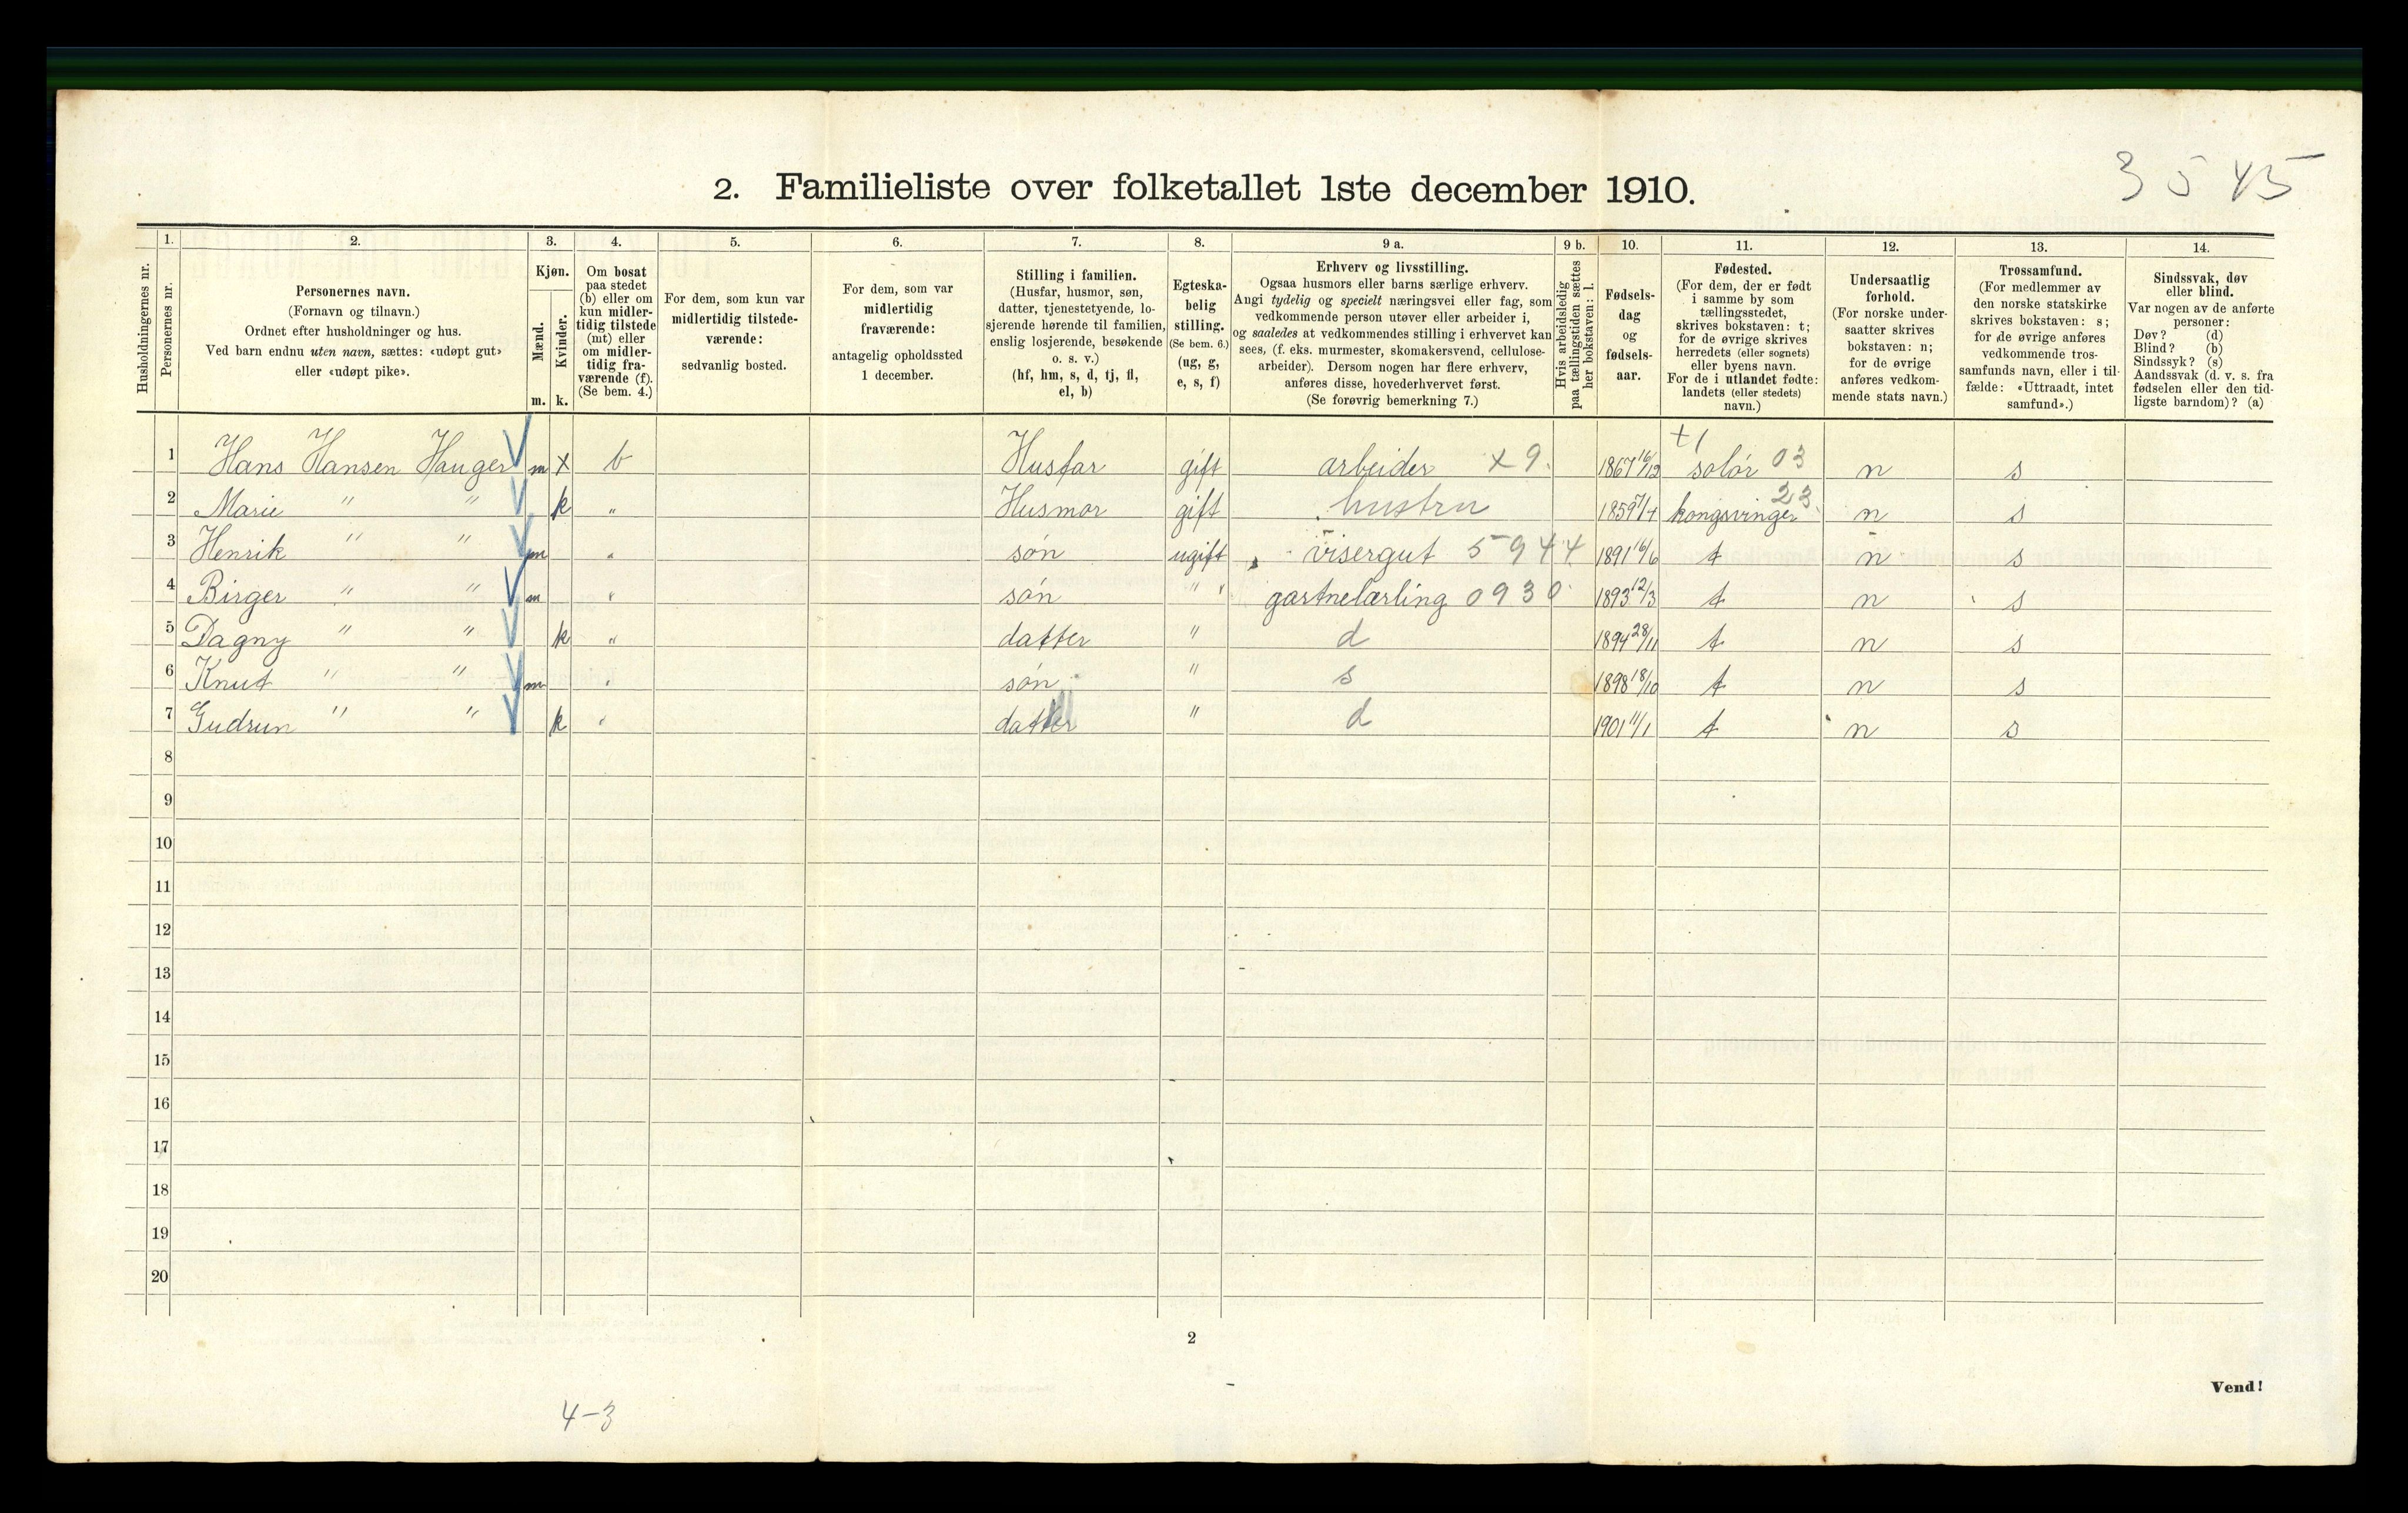 3545
2. Familieliste over folketallet 1ste december 1910.
Husholdningernes nr.
1. Personernes nr.
2. Personernes navn. (Fornavn og tilnavn.) Ordnet efter husholdninger og hus. Ved barn endnu uten navn, sættes: «udøpt gut» eller «udøpt pike».
3. Kjøn. Mænd. m. Kvinder. k.
4. Om bosat paa stedet (b) eller om kun midlertidig tilstede (mt) eller om midlertidig fraværende (f). (Se bem. 4.)
5. For dem, som kun var midlertidig tilstedeværende: sedvanlig bosted.
6. For dem, som var midlertidig fraværende: antagelig opholdssted 1 december.
7. Stilling i familien. (Husfar, husmor, søn, datter, tjenestetyende, losjerende hørende til familien, enslig losjerende, besøkende o. s. v.) (hf, hm, s, d, tj, fl, el, b)
8. Egteskabelig stilling. (Se bem. 6.) (ug, g, e, s, f)
9 a. Erhverv og livsstilling. Ogsaa husmors eller barns særlige erhverv. Angi tydelig og specielt næringsvei eller fag, som vedkommende person utøver eller arbeider i, og saaledes at vedkommendes stilling i erhvervet kan sees, (f. eks. murmester, skomakersvend, cellulosearbeider). Dersom nogen har flere erhverv, anføres disse, hovederhvervet først. (Se forøvrig bemerkning 7.)
9 b. Hvis arbeidsledig paa tællingstiden sættes her bokstaven: l.
10. Fødselsdag og fødselsaar.
11. Fødested. (For dem, der er født i samme by som tællingsstedet, skrives bokstaven: t; for de øvrige skrives herredets (eller sognets) eller byens navn. For de i utlandet fødte: landets (eller stedets) navn.)
12. Undersaatlig forhold. (For norske undersaatter skrives bokstaven: n; for de øvrige anføres vedkommende stats navn.)
13. Trossamfund. (For medlemmer av den norske statskirke skrives bokstaven: s; for de øvrige anføres vedkommende trossamfunds navn, eller i tilfælde: «Uttraadt, intet samfund».)
14. Sindssvak, døv eller blind. Var nogen av de anførte personer: Døv? (d) Blind? (b) Sindssyk? (s) Aandssvak (d. v. s. fra fødselen eller den tidligste barndom)? (a)
1 Hans Hansen Hauger m x b Husfar gift arbeider x 9. 1867 16/12 solør 03 n s
2 Marie " " k " Husmor gift hustru 1859 7/4 kongsvinger 23 n s
3 Henrik " " m " søn ugift visergut 5944 1891 16/6 t n s
4 Birger " " m " søn " gartnelærling 0930 1893 12/3 t n s
5 Dagny " " k " datter " d 1894 28/11 t n s
6 Knut " " m " søn " s 1898 18/10 t n s
7 Gudrun " " k " datter " d 1901 11/1 t n s
8
9
10
11
12
13
14
15
16
17
18
19
20
2
Vend!
4-3